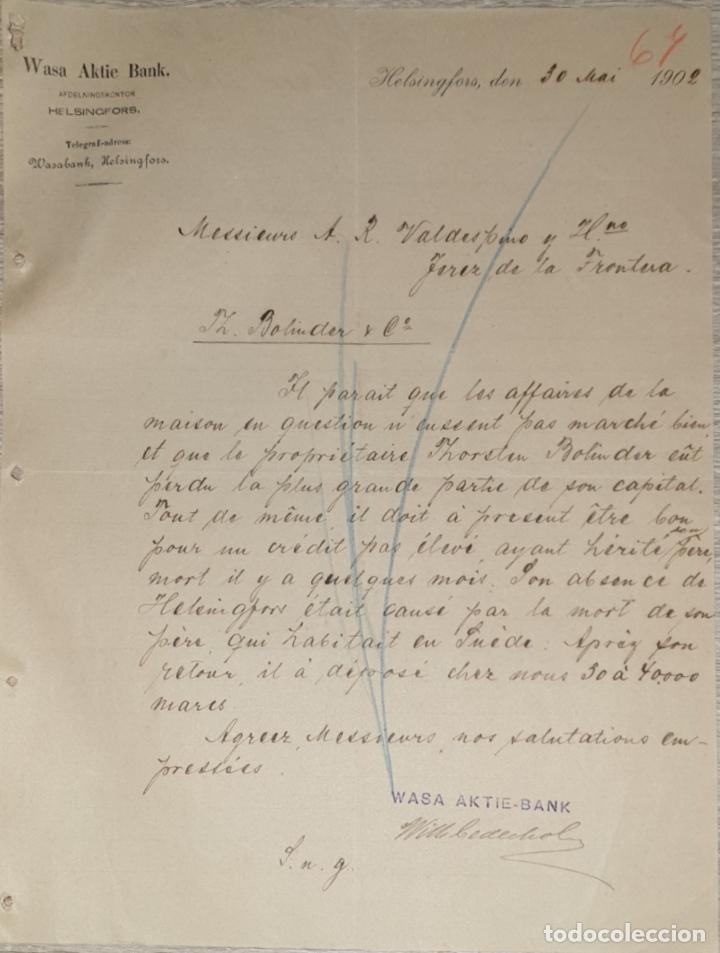 67
Wasa Aktie Bank.
AFDELNINGSKONTOR
HELSINGFORS.
Telegraf-adress:
Wasabank, Helsingfors.
Helsingfors, den 30 Mai 1902
Messieurs A. R. Valdespino y Hno
Jerez de la Frontera.
Th. Bolinder & Co
Il parait que les affaires de la
maison en question n'eussent pas marché bien
et que le propriétaire Thorsten Bolinder eût
perdu la plus grande partie de son capital.
Tout de même, il doit à present être bon
pour un crédit pas élevé, ayant hérité son père,
mort il y a quelques mois. Son absence de
Helsingfors était causé par la mort de son
père, qui habitait en Suède. Après son
retour, il à déposé chez nous 30 à 40,000
marcs.
Agreez, Messieurs, nos salutations em-
pressées.
WASA AKTIE-BANK
S. n. g.
todocoleccion.net